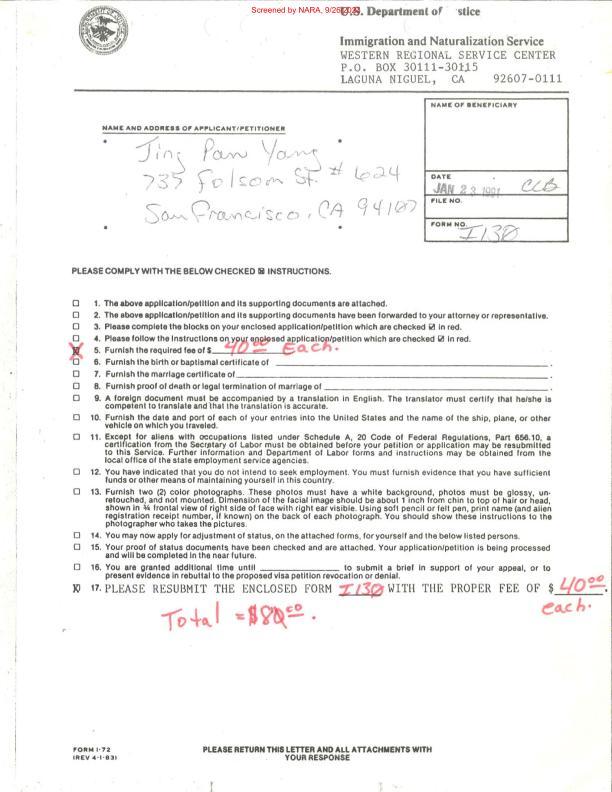 Screened by NARA, 9/26/2023
U.S. Department of Justice
Immigration and Naturalization Service
WESTERN REGIONAL SERVICE CENTER
P.O. BOX 30111-30115
LAGUNA NIGUEL, CA 92607-0111
NAME OF BENEFICIARY
NAME AND ADDRESS OF APPLICANT/PETITIONER
Jing Pan Yang
735 Folsom St. # 624
San Francisco, CA 94107
DATE
JAN 23 1991 CLB
FILE NO.
FORM NO.
I130
PLEASE COMPLY WITH THE BELOW CHECKED ☒ INSTRUCTIONS.
☐ 1. The above application/petition and its supporting documents are attached.
☐ 2. The above application/petition and its supporting documents have been forwarded to your attorney or representative.
☐ 3. Please complete the blocks on your enclosed application/petition which are checked ☑ in red.
☐ 4. Please follow the instructions on your enclosed application/petition which are checked ☑ in red.
☒ 5. Furnish the required fee of $ 40 00 Each.
☐ 6. Furnish the birth or baptismal certificate of ________ .
☐ 7. Furnish the marriage certificate of ________ .
☐ 8. Furnish proof of death or legal termination of marriage of ________ .
☐ 9. A foreign document must be accompanied by a translation in English. The translator must certify that he/she is
competent to translate and that the translation is accurate.
☐ 10. Furnish the date and port of each of your entries into the United States and the name of the ship, plane, or other
vehicle on which you traveled.
☐ 11. Except for aliens with occupations listed under Schedule A, 20 Code of Federal Regulations, Part 656.10, a
certification from the Secretary of Labor must be obtained before your petition or application may be resubmitted
to this Service. Further information and Department of Labor forms and instructions may be obtained from the
local office of the state employment service agencies.
☐ 12. You have indicated that you do not intend to seek employment. You must furnish evidence that you have sufficient
funds or other means of maintaining yourself in this country.
☐ 13. Furnish two (2) color photographs. These photos must have a white background, photos must be glossy, un-
retouched, and not mounted. Dimension of the facial image should be about 1 inch from chin to top of hair or head,
shown in ¾ frontal view of right side of face with right ear visible. Using soft pencil or felt pen, print name (and alien
registration receipt number, if known) on the back of each photograph. You should show these instructions to the
photographer who takes the pictures.
☐ 14. You may now apply for adjustment of status, on the attached forms, for yourself and the below listed persons.
☐ 15. Your proof of status documents have been checked and are attached. Your application/petition is being processed
and will be completed in the near future.
☐ 16. You are granted additional time until ________ to submit a brief in support of your appeal, or to
present evidence in rebuttal to the proposed visa petition revocation or denial.
☒ 17. PLEASE RESUBMIT THE ENCLOSED FORM I130 WITH THE PROPER FEE OF $ 40 00 .
each.
Total = $80 00 .
FORM I-72
(REV 4-1-83)
PLEASE RETURN THIS LETTER AND ALL ATTACHMENTS WITH
YOUR RESPONSE